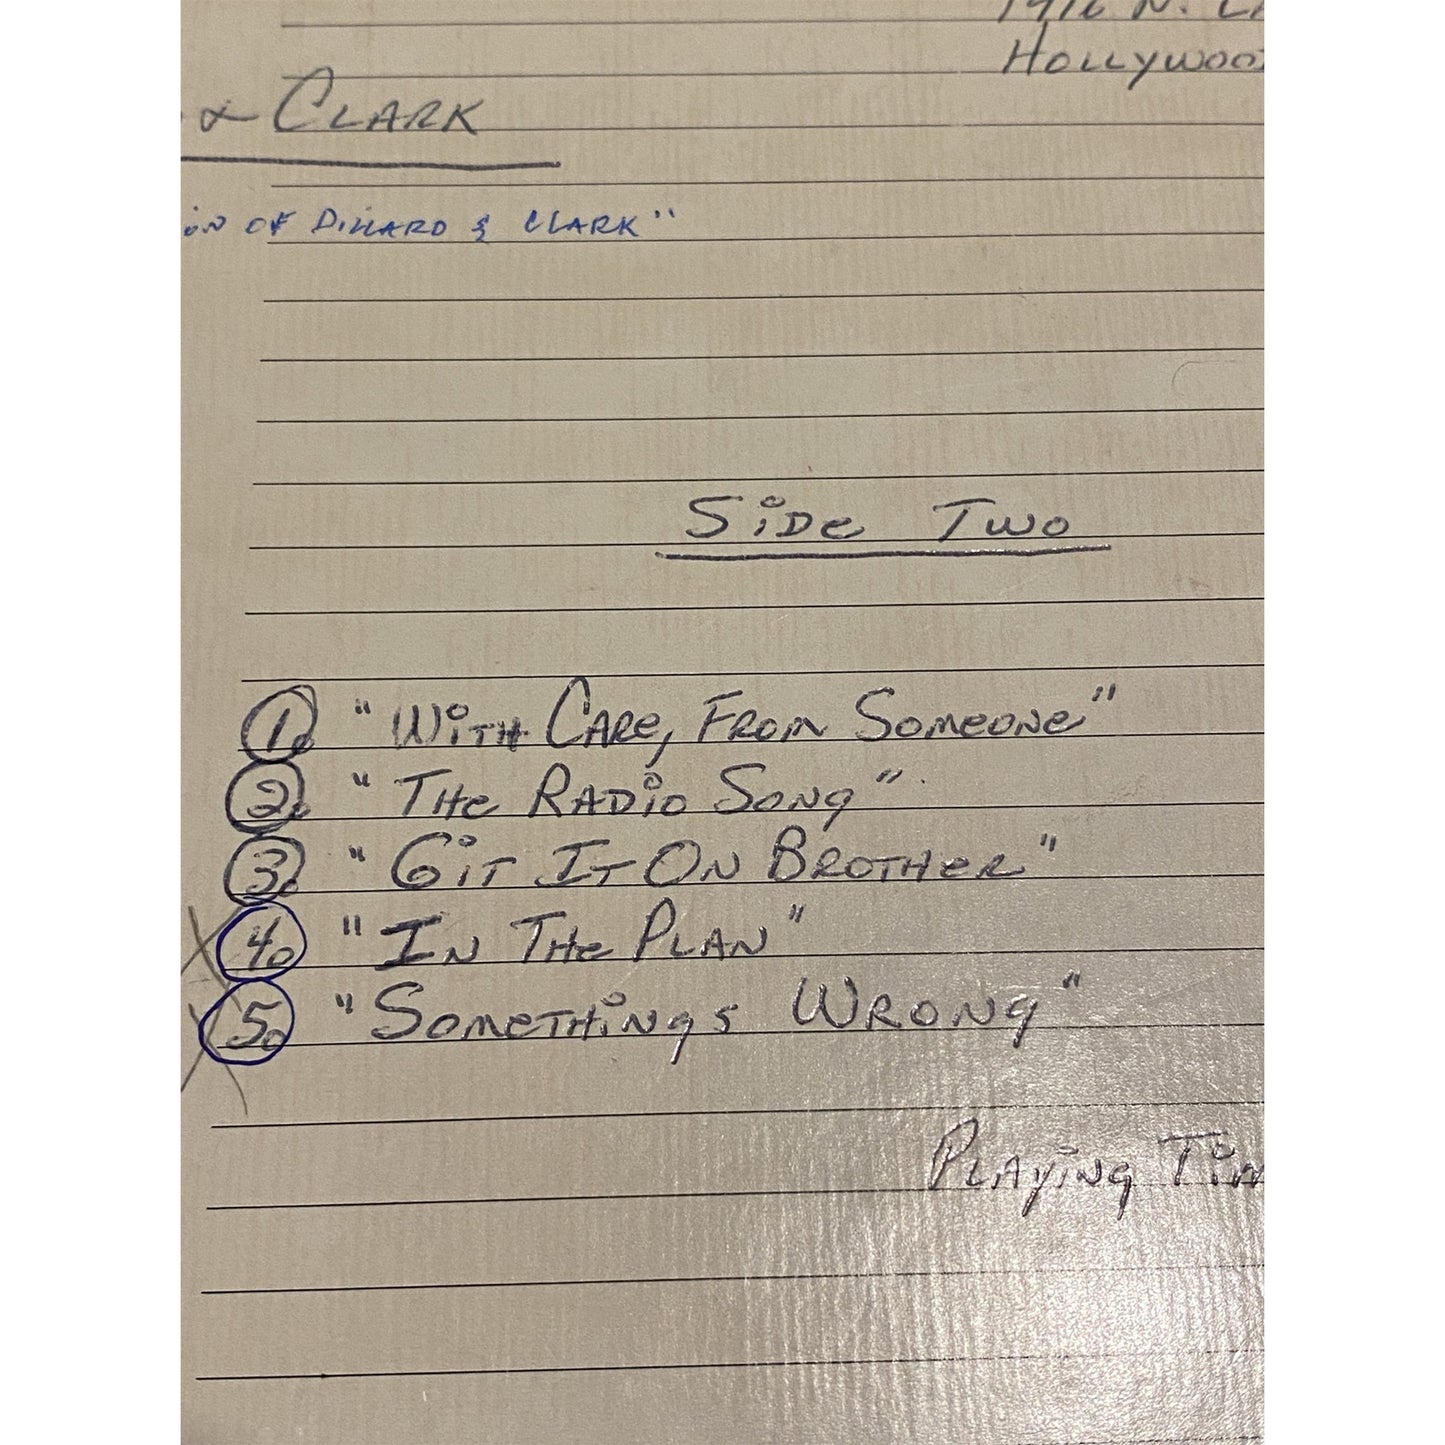 1416 N. L
Hollywoo
& Clark
on of Dillard & Clark"
Side Two
1. "With Care, From Someone"
2. "The Radio Song"
3. "Git It On Brother"
4. "In The Plan"
5. "Somethings Wrong"
Playing Tim